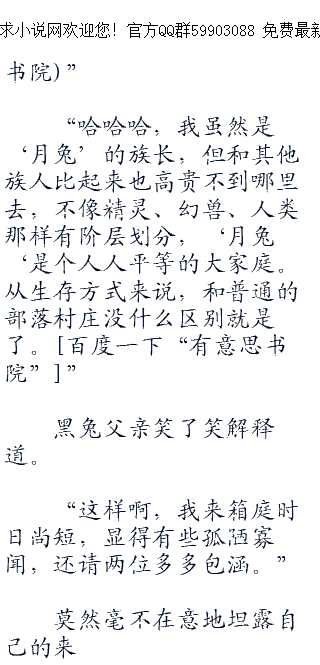 求小说网欢迎您！官方QQ群59903088 免费最新
书院)”
“哈哈哈，我虽然是
‘月兔’的族长，但和其他
族人比起来也高贵不到哪里
去，不像精灵、幻兽、人类
那样有阶层划分，‘月兔
‘是个人人平等的大家庭。
从生存方式来说，和普通的
部落村庄没什么区别就是
了。[百度一下“有意思书
院”]”
黑兔父亲笑了笑解释
道。
“这样啊，我来箱庭时
日尚短，显得有些孤陋寡
闻，还请两位多多包涵。”
莫然毫不在意地坦露自
己的来